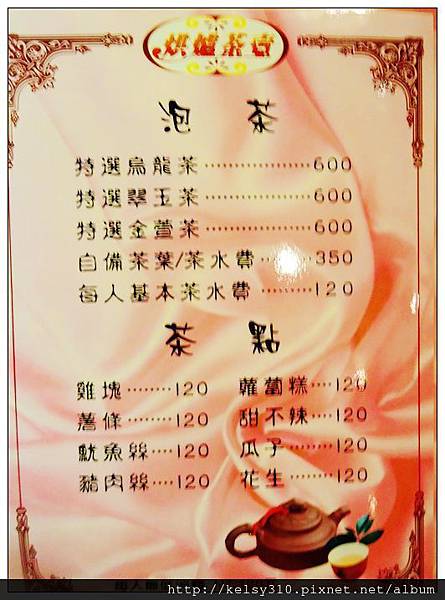 烘爐茶壺
泡 茶
特選烏龍茶⋯⋯⋯⋯⋯600
特選翠玉茶⋯⋯⋯⋯⋯600
特選金萱茶⋯⋯⋯⋯⋯600
自備茶葉/茶水費⋯⋯350
每人基本茶水費⋯⋯120
茶 點
雞塊⋯⋯120 蘿蔔糕⋯⋯120
薯條⋯⋯120 甜不辣⋯⋯120
魷魚絲⋯⋯120 瓜子⋯⋯120
豬肉絲⋯⋯120 花生⋯⋯120
http://kelsy310.pixnet.net/album